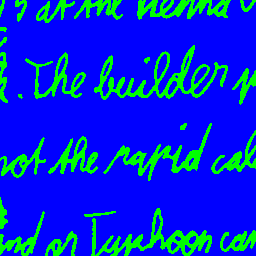 at the vienna
. The builder
not the rapid cal
and or Typhoon can